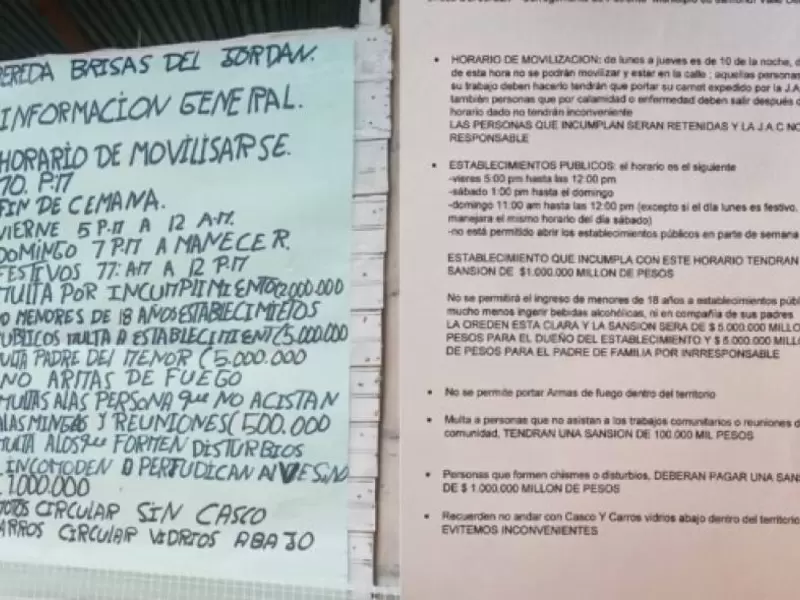 VEREDA BRISAS DEL JORDAN.
INFORMACION GENERAL.
HORARIO DE MOVILISARSE.
10. P.M
FIN DE CEMANA.
VIERNE 5 P.M A 12 A.M.
DOMINGO 7 P.M A MANECER.
FESTIVOS 11: AM A 12 P.M
MULTA POR INCUMPLIMIENTO(2.000.000
NO MENORES DE 18 AÑOS ESTABLECIMIETOS
PUBLICOS MULTA A ESTABLECIMIENT(5.000.000
MULTA PADRE DEL MENOR (5.000.000
NO ARMAS DE FUEGO
MULTAS ALAS PERSONA que NO ACISTAN
ALAS MINGAS Y REUNIONES(500.000
MULTA ALOS que FORMEN DISTURBIOS
INCOMODEN O PERJUDICAN AL VESIN
1.000.000
MOTOS CIRCULAR SIN CASCO
CARROS CIRCULAR VIDRIOS ABAJO
• HORARIO DE MOVILIZACION: de lunes a jueves es de 10 de la noche, d
de esta hora no se podrán movilizar y estar en la calle ; aquellas personas
su trabajo deben hacerlo tendrán que portar su carnet expedido por la J.A
también personas que por calamidad o enfermedad deben salir después d
horario dado no tendrán inconveniente
LAS PERSONAS QUE INCUMPLAN SERAN RETENIDAS Y LA J.A.C NO
RESPONSABLE
• ESTABLECIMIENTOS PUBLICOS: el horario es el siguiente
-vieres 5:00 pm hasta las 12:00 pm
-sábado 1:00 pm hasta el domingo
-domingo 11:00 am hasta las 12:00 pm (excepto si el día lunes es festivo,
manejara el mismo horario del día sábado)
-no está permitido abrir los establecimientos públicos en parte de semana
ESTABLECIMIENTO QUE INCUMPLA CON ESTE HORARIO TENDRAN
SANSION DE $1.000.000 MILLON DE PESOS
No se permitirá el ingreso de menores de 18 años a establecimientos públ
mucho menos ingerir bebidas alcohólicas, ni en compañía de sus padres
LA OREDEN ESTA CLARA Y LA SANSION SERA DE $ 5.000.000 MILLO
PESOS PARA EL DUEÑO DEL ESTABLECIMIENTO Y $ 5.000.000 MILLO
DE PESOS PARA EL PADRE DE FAMILIA POR INRRESPONSABLE
• No se permite portar Armas de fuego dentro del territorio
• Multa a personas que no asistan a los trabajos comunitarios o reuniones d
comunidad, TENDRAN UNA SANSION DE 100.000 MIL PESOS
• Personas que formen chismes o disturbios, DEBERAN PAGAR UNA SAN
DE $ 1.000.000 MILLON DE PESOS
• Recuerden no andar con Casco Y Carros vidrios abajo dentro del territorio
EVITEMOS INCONVENIENTES